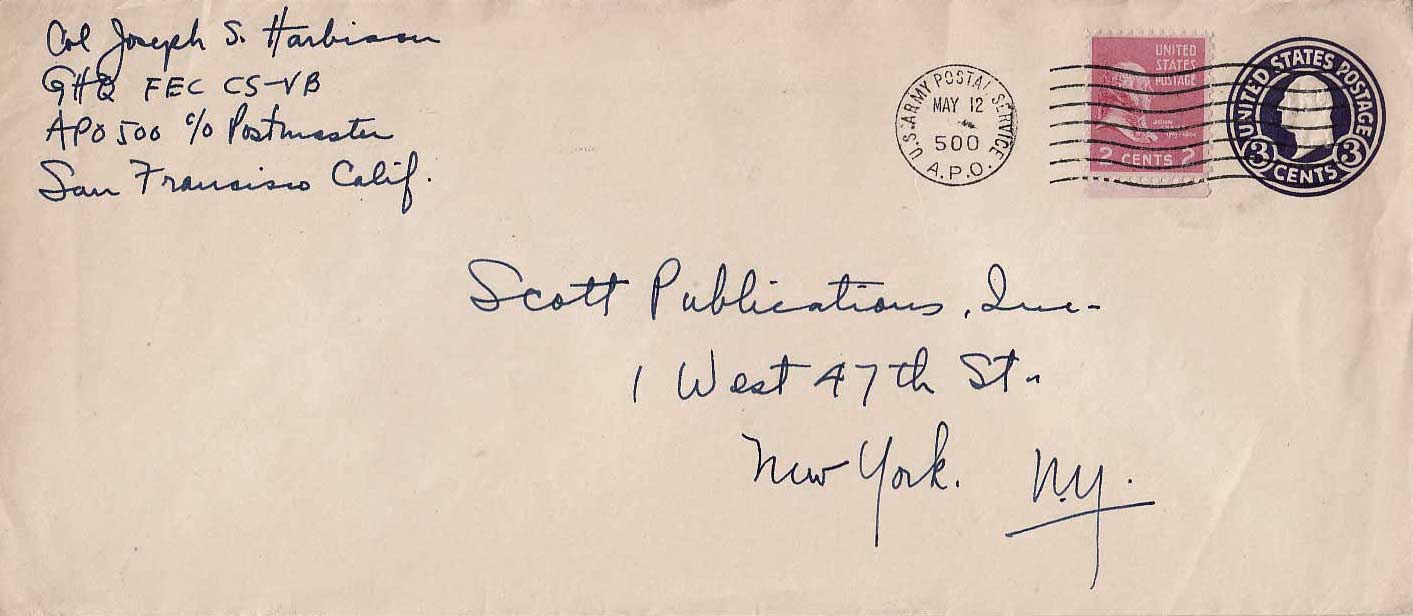 Col Joseph S. Harbison
GHQ FEC CS-VB
APO 500 c/o Postmaster
San Francisco Calif.
U.S. ARMY POSTAL SERVICE
MAY 12
500
A.P.O.
UNITED
STATES
POSTAGE
JOHN
2 CENTS 2
UNITED STATES POSTAGE
3 CENTS 3
Scott Publications, Inc.
1 West 47th St.
New York. N.Y.